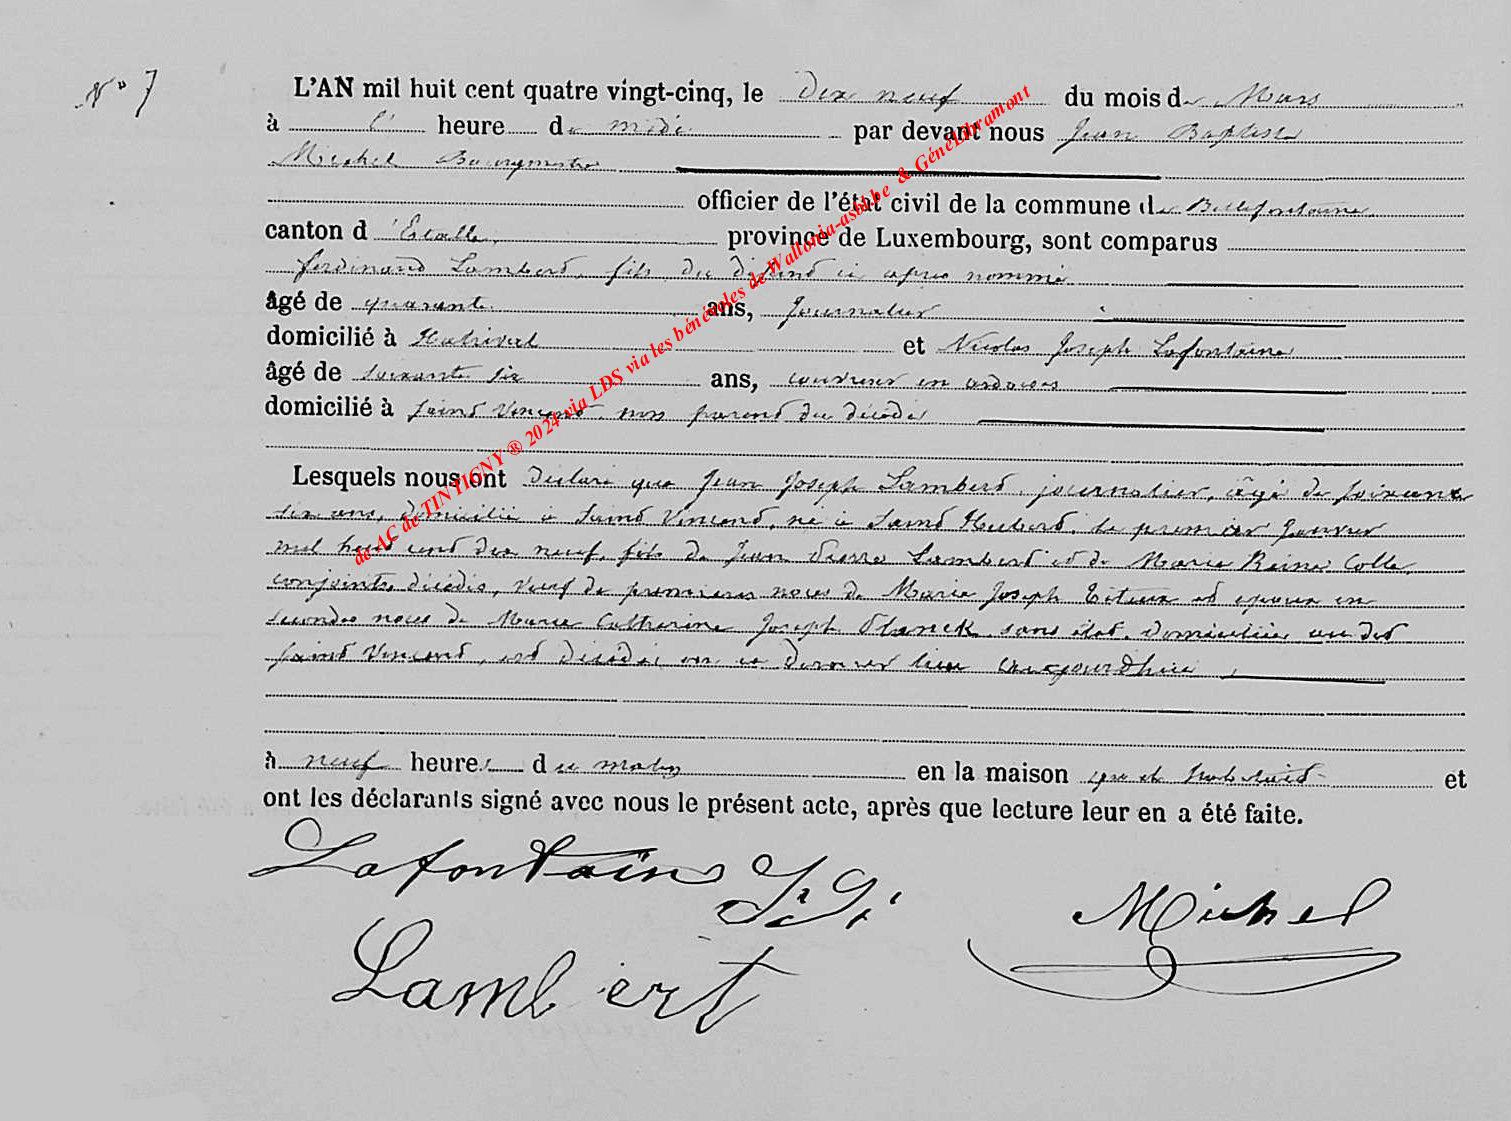 N° 7
L'AN mil huit cent quatre vingt-cinq, le dix neuf du mois de Mars
à l' heure de midi par devant nous Jean Baptiste
Michel Bourgmestre
officier de l'état civil de la commune de Bellefontaine
canton d'Etalle, province de Luxembourg, sont comparus
ferdinand Lambert, fils du défunt ci après nommé
âgé de quarante ans, Journalier
domicilié à Hatrival et Nicolas Joseph Lafontaine
âgé de soixante six ans, couvreur en ardoises
domicilié à saint Vincent non parent du décédé
Lesquels nous ont déclaré que Jean Joseph Lambert, journalier, âgé de soixante
six ans, domicilié à Saint Vincent, né à Saint Hubert, le premier Janvier
mil huit cent dix neuf, fils de Jean Pierre Lambert et de Marie Reine Colle,
conjoints, décédés, veuf de premieres noces de Marie Joseph et epoux en
secondes noces de Marie Catherine Joseph Planck, sans état, domiciliée au dit
saint Vincent, est décédé en ce dernier lieu aujourdhui
à neuf heures du matin en la maison qu'il habitait et
ont les déclarants signé avec nous le présent acte, après que lecture leur en a été faite.
Lafontaine
Michel
Lambert
de AC de TINTIGNY ® 2024 via LDS via les bénévoles de Wallonia-asbl.be & GénéLibramont